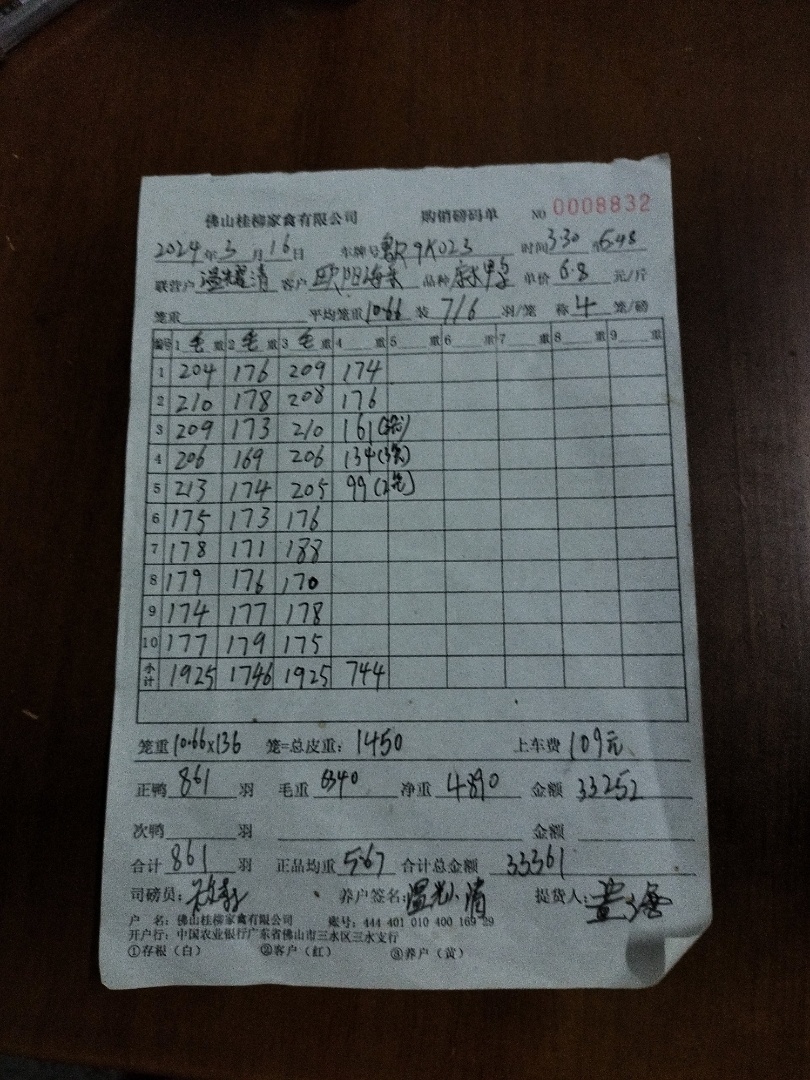 佛山桂柳家禽有限公司 购销磅码单 NO 0008832
2024年3月16日 车牌号 9K023 时间3:30 5:48
联营户 温耀清 客户 欧阳海 品种 麻鸭 单价 6.8 元/斤
笼重 平均笼重10.66 装 7/6 羽/笼 称 4 笼/磅
编号 1 毛 重 2 毛 重 3 毛 重 4 重 5 重 6 重 7 重 8 重 9 重
1 204 176 209 174
2 210 178 208 176
3 209 173 210 161
4 206 169 206 134(3笼)
5 213 174 205 99(2笼)
6 175 173 176
7 178 171 188
8 179 176 170
9 174 177 178
10 177 179 175
小计 1925 1746 1925 744
笼重10.66x136 笼=总皮重: 1450 上车费 109元
正鸭 861 羽 毛重 6340 净重 4890 金额 33252
次鸭 羽 金额
合计 861 羽 正品均重 5.67 合计总金额 33361
司磅员: 养户签名: 温 清 提货人:
户 名: 佛山桂柳家禽有限公司 账号: 444 401 010 400 169 29
开户行: 中国农业银行广东省佛山市三水区三水支行
①存根(白) ②客户(红) ③养户(黄)